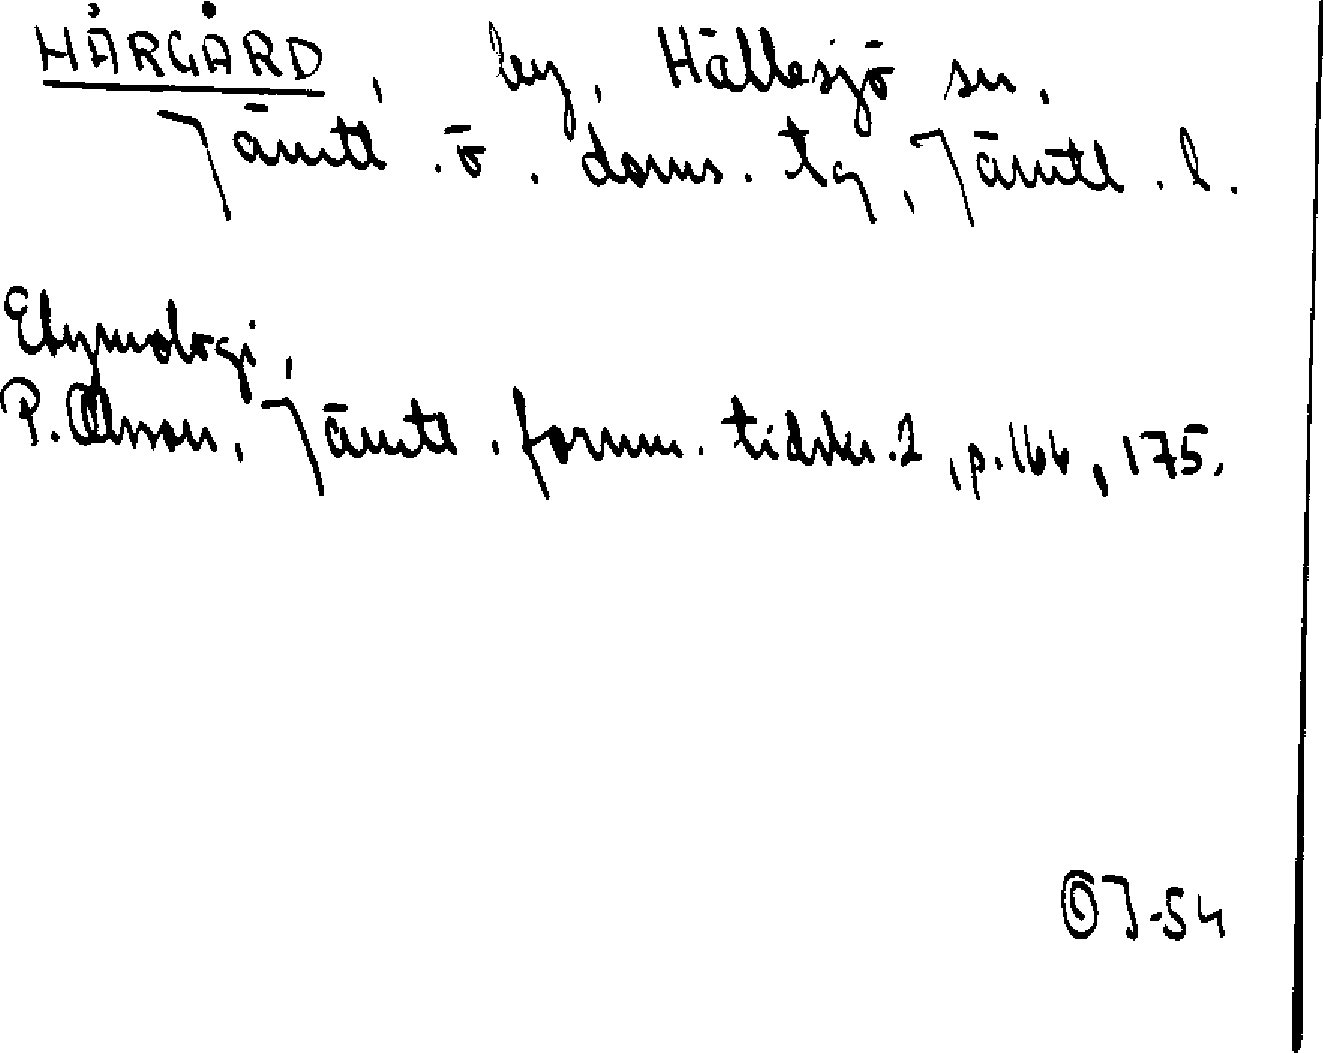 HÅRGÅRD, by, Hällesjö sn,
Jämtl. ö. doms. tg, Jämtl. l.
Etymologi,
P. Olsson, Jämtl. fornm. tidskr. 2, p. 166, 175.
OJ-54